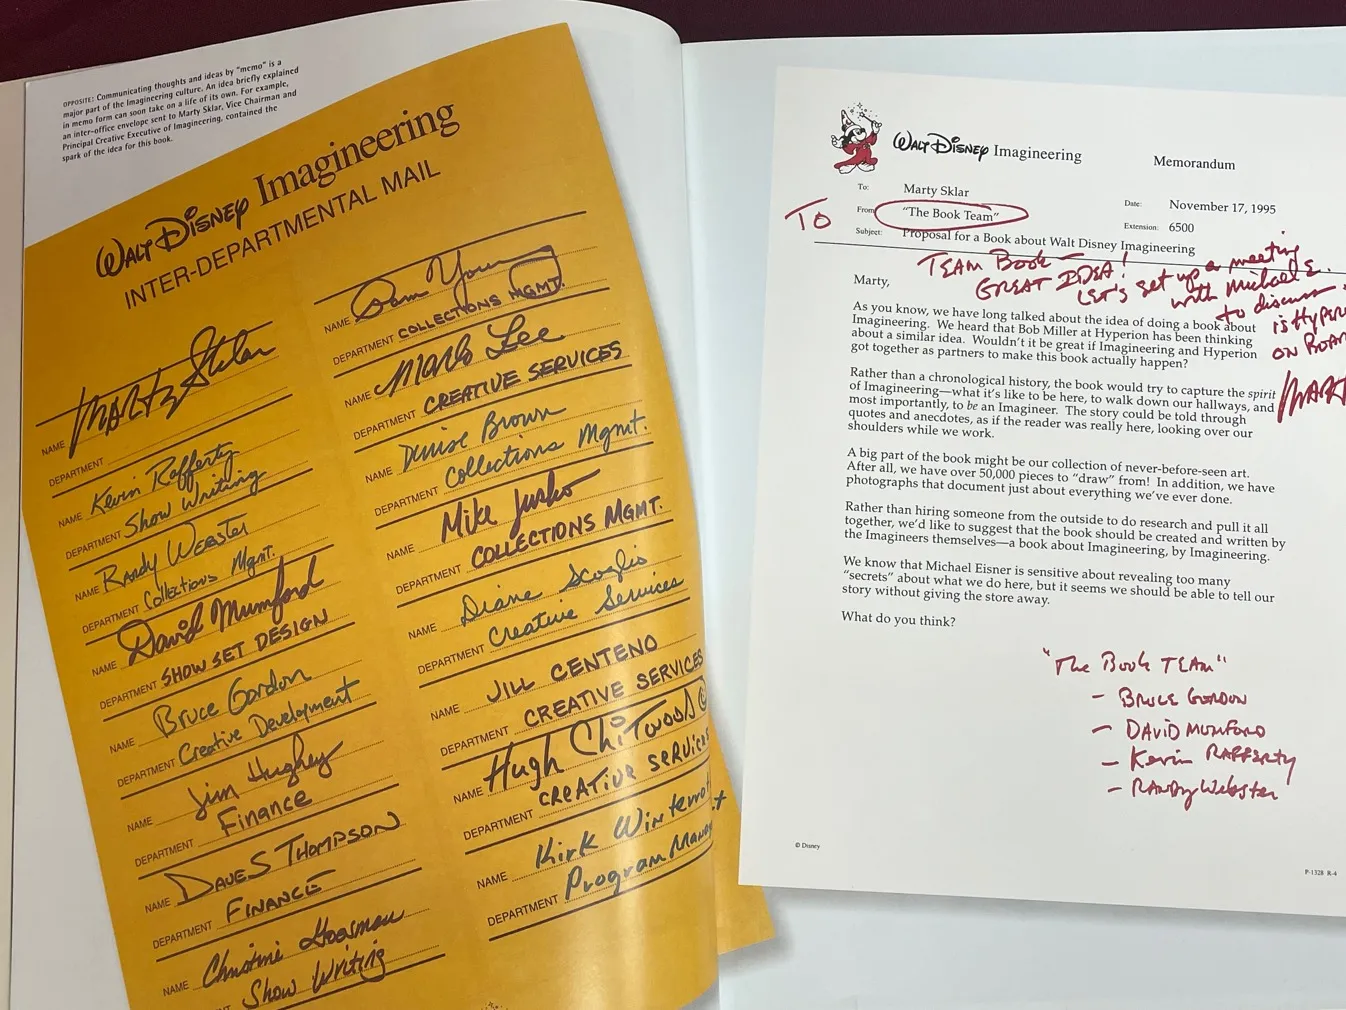 OPPOSITE: Communicating thoughts and ideas by "memo" is a
major part of the Imagineering culture. An idea briefly explained
in memo form can soon take on a life of its own. For example,
an inter-office envelope sent to Marty Sklar, Vice Chairman and
Principal Creative Executive of Imagineering, contained the
spark of the idea for this book.
WALT DISNEY Imagineering
INTER-DEPARTMENTAL MAIL
NAME MARTY Sklar
DEPARTMENT
NAME Kevin Rafferty
DEPARTMENT Show Writing
NAME Randy Webster
DEPARTMENT Collections Mgmt.
NAME David Mumford
DEPARTMENT SHOW SET DESIGN
NAME Bruce Gordon
DEPARTMENT Creative Development
NAME Jim Hughey
DEPARTMENT Finance
NAME DAVE S THOMPSON
DEPARTMENT FINANCE
NAME Christine Hoosman
Show Writing
NAME
DEPARTMENT COLLECTIONS MGMT.
NAME Marlo Lee
DEPARTMENT CREATIVE SERVICES
NAME Denise Brown
DEPARTMENT Collections Mgmt.
NAME Mike Jusko
DEPARTMENT COLLECTIONS MGMT.
NAME Diane Scoglio
DEPARTMENT Creative Services
NAME JILL CENTENO
DEPARTMENT CREATIVE SERVICES
NAME Hugh CHITWOOD
DEPARTMENT CREATIVE SERVICES
NAME Kirk Wintero
DEPARTMENT Program Manag
WALT DISNEY Imagineering
Memorandum
To: Marty Sklar
Date: November 17, 1995
TO
From: "The Book Team"
Extension: 6500
Subject: Proposal for a Book about Walt Disney Imagineering
TEAM BOOK -
GREAT IDEA!
LET'S set up a meeting
with Michael E.
to discuss -
is Hyper
ON BOAR
MART
Marty,
As you know, we have long talked about the idea of doing a book about
Imagineering. We heard that Bob Miller at Hyperion has been thinking
about a similar idea. Wouldn't it be great if Imagineering and Hyperion
got together as partners to make this book actually happen?
Rather than a chronological history, the book would try to capture the spirit
of Imagineering—what it's like to be here, to walk down our hallways, and
most importantly, to be an Imagineer. The story could be told through
quotes and anecdotes, as if the reader was really here, looking over our
shoulders while we work.
A big part of the book might be our collection of never-before-seen art.
After all, we have over 50,000 pieces to "draw" from! In addition, we have
photographs that document just about everything we've ever done.
Rather than hiring someone from the outside to do research and pull it all
together, we'd like to suggest that the book should be created and written by
the Imagineers themselves—a book about Imagineering, by Imagineering.
We know that Michael Eisner is sensitive about revealing too many
"secrets" about what we do here, but it seems we should be able to tell our
story without giving the store away.
What do you think?
"The Book TEAM"
- BRUCE GORDON
- DAVID MUMFORD
- Kevin RAFFERTY
- RANDY WEBSTER
© Disney
P-1328 R-4